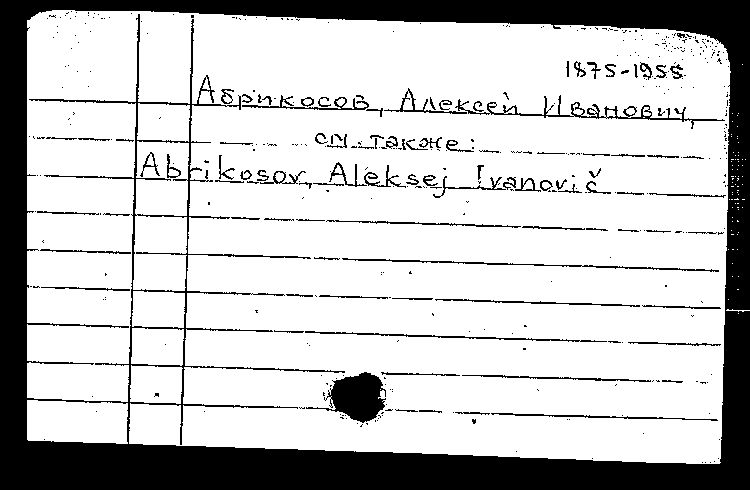 1875-1955
Абрикосов, Алексей Иванович,
см. также:
Abrikosov, Aleksej Ivanovič